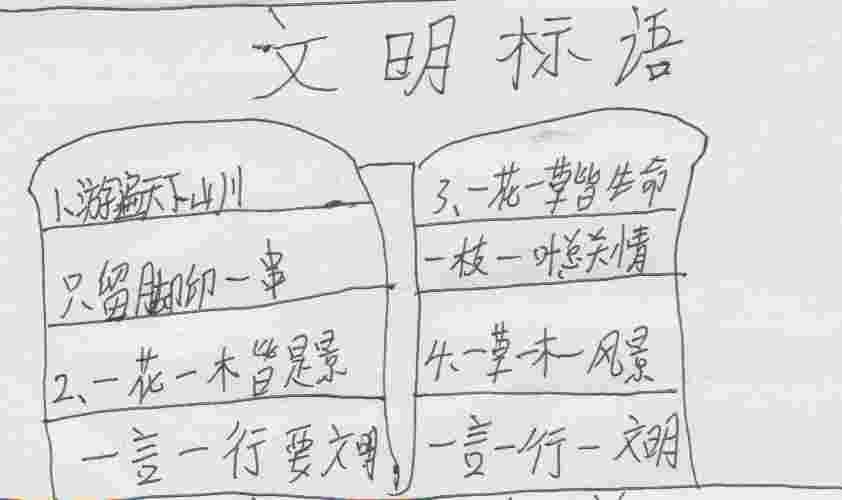 文明标语
1、游遍天下山川
只留脚印一串
2、一花一木皆是景
一言一行要文明
3、一花一草皆生命
一枝一叶总关情
4、一草一木一风景
一言一行一文明